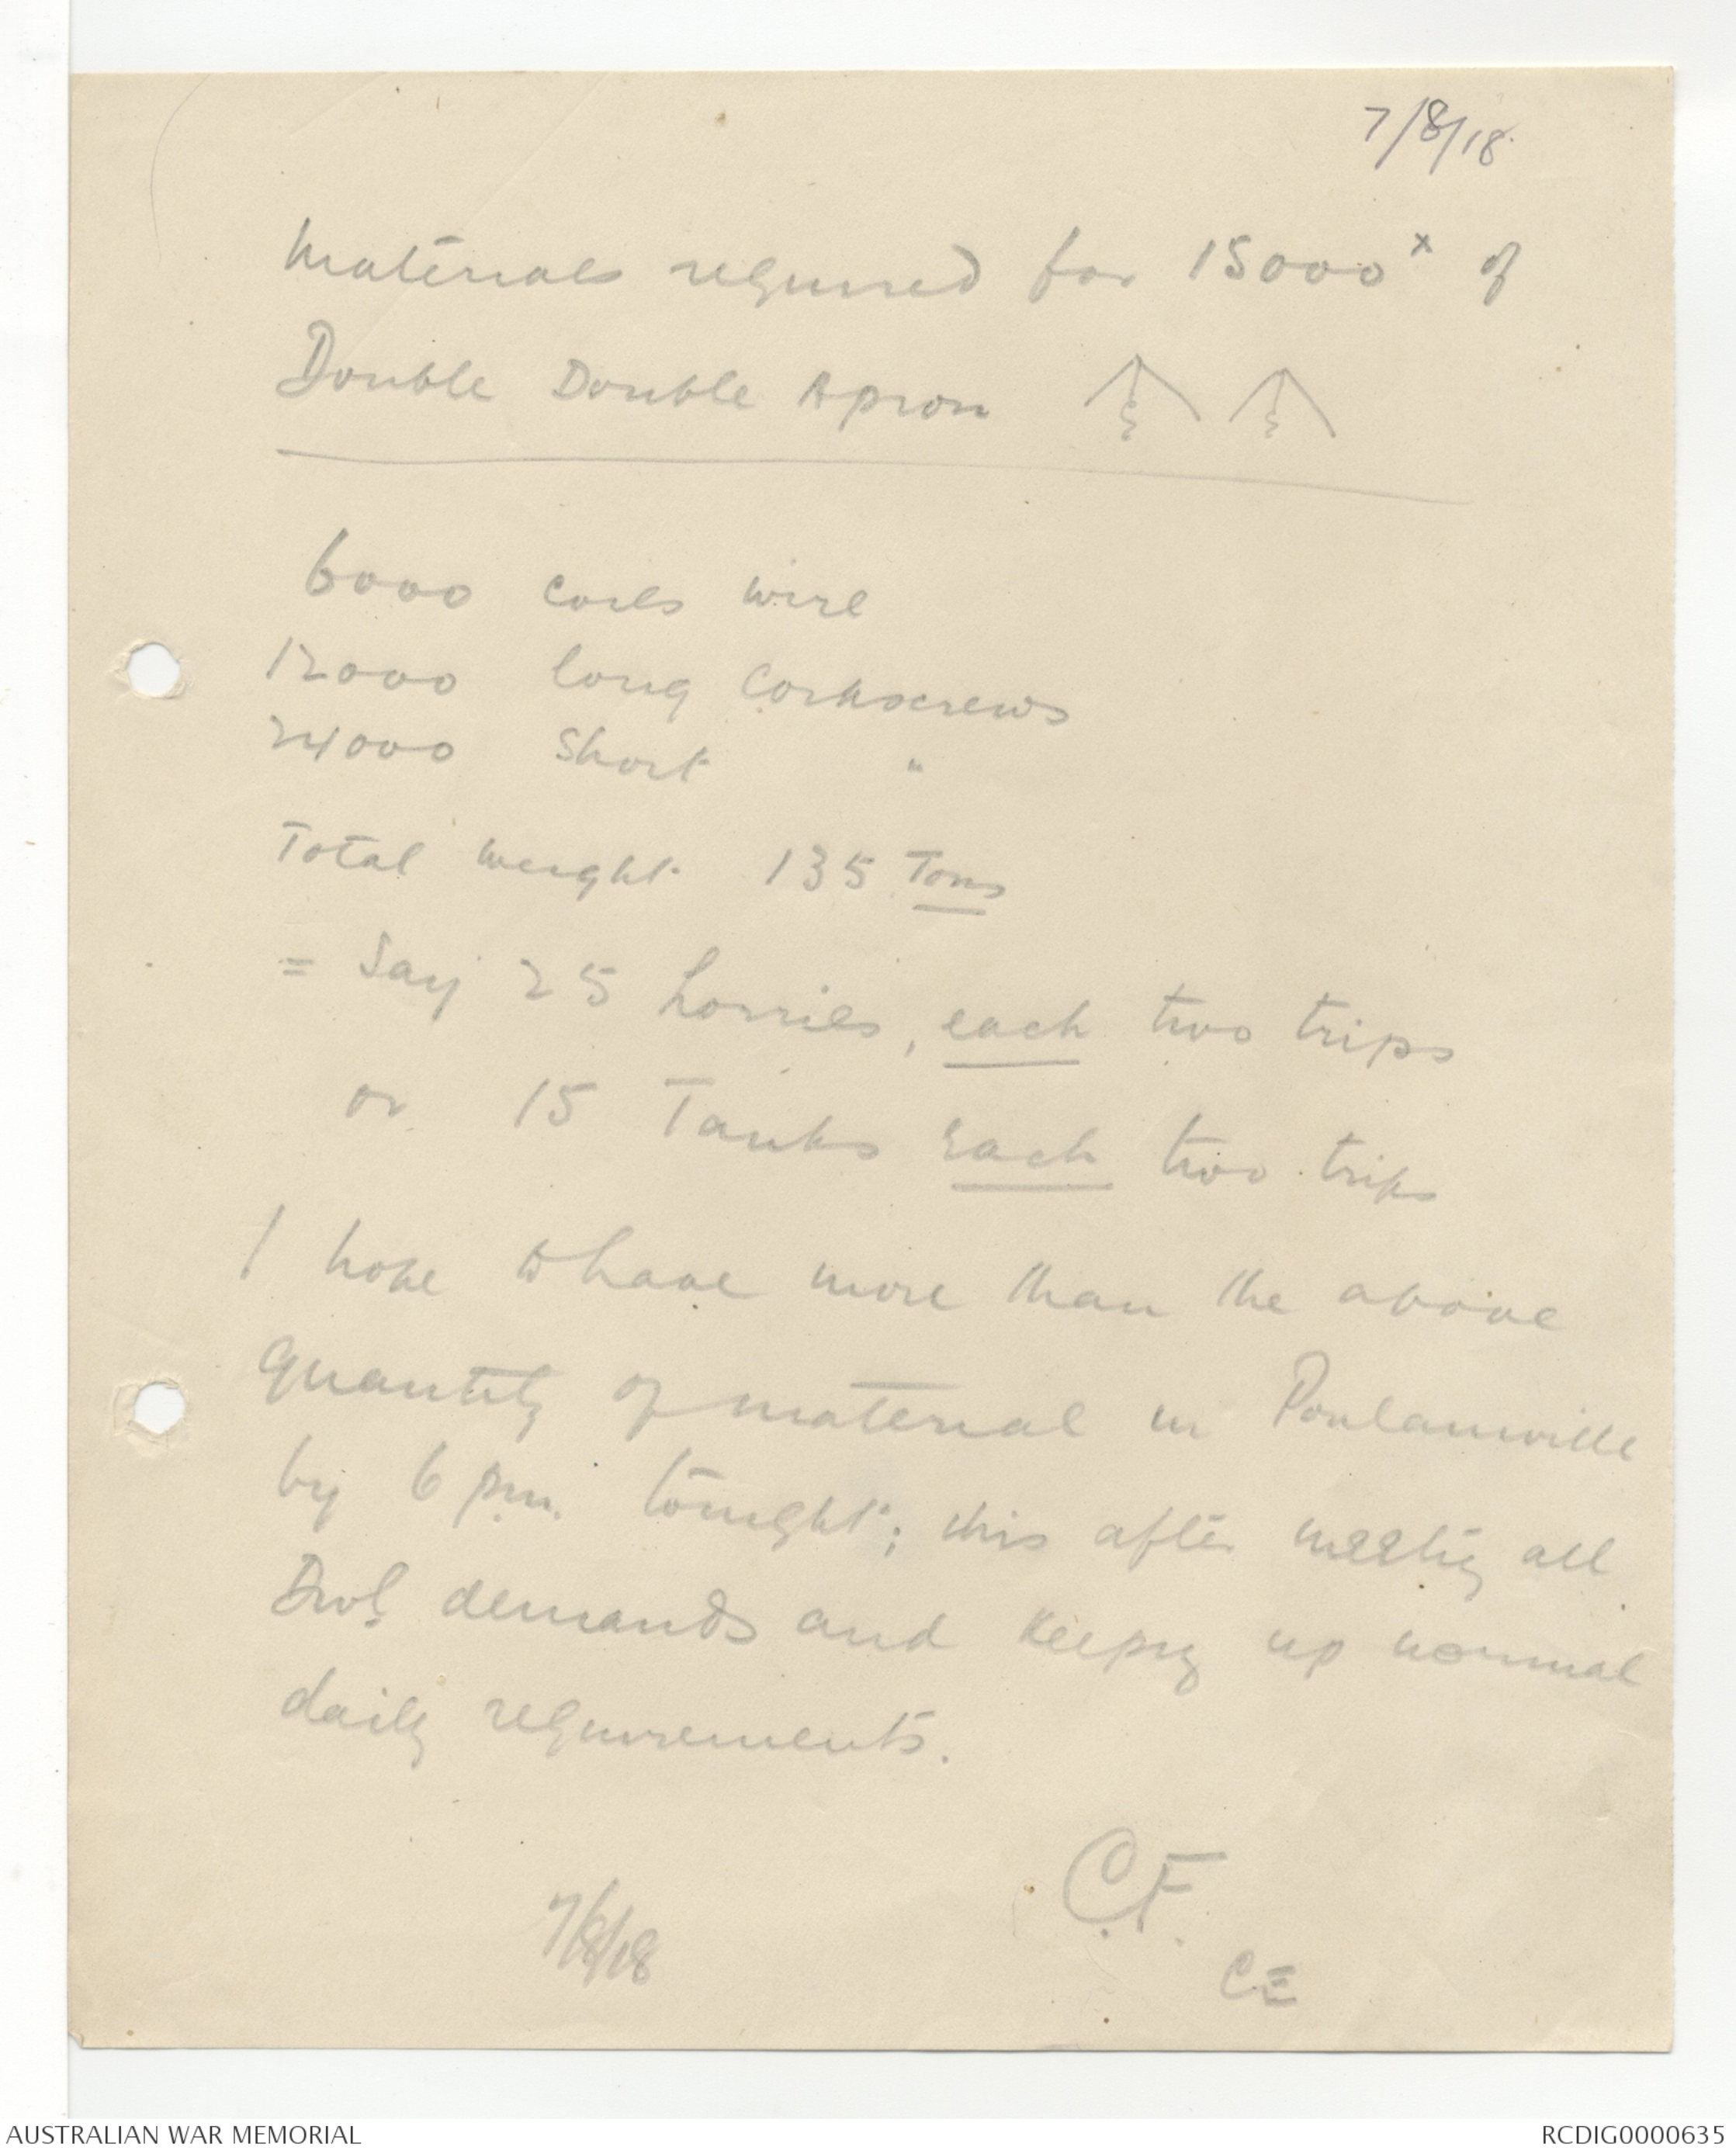 7/8/18
Materials required for 15000ˣ of
Double Double Apron
6000 coils wire
12000 long Corkscrews
24000 Short "
Total weight 135 Tons
= Say 25 Lorries, each two trips
or 15 Tanks Each two trips
I hope to have more than the above
quantity of material in Poulainville
by 6 pm. tonight; this after meeting all
demands and keeping up normal
daily requirements.
C.F.
CE
7/8/18
AUSTRALIAN WAR MEMORIAL
RCDIG0000635